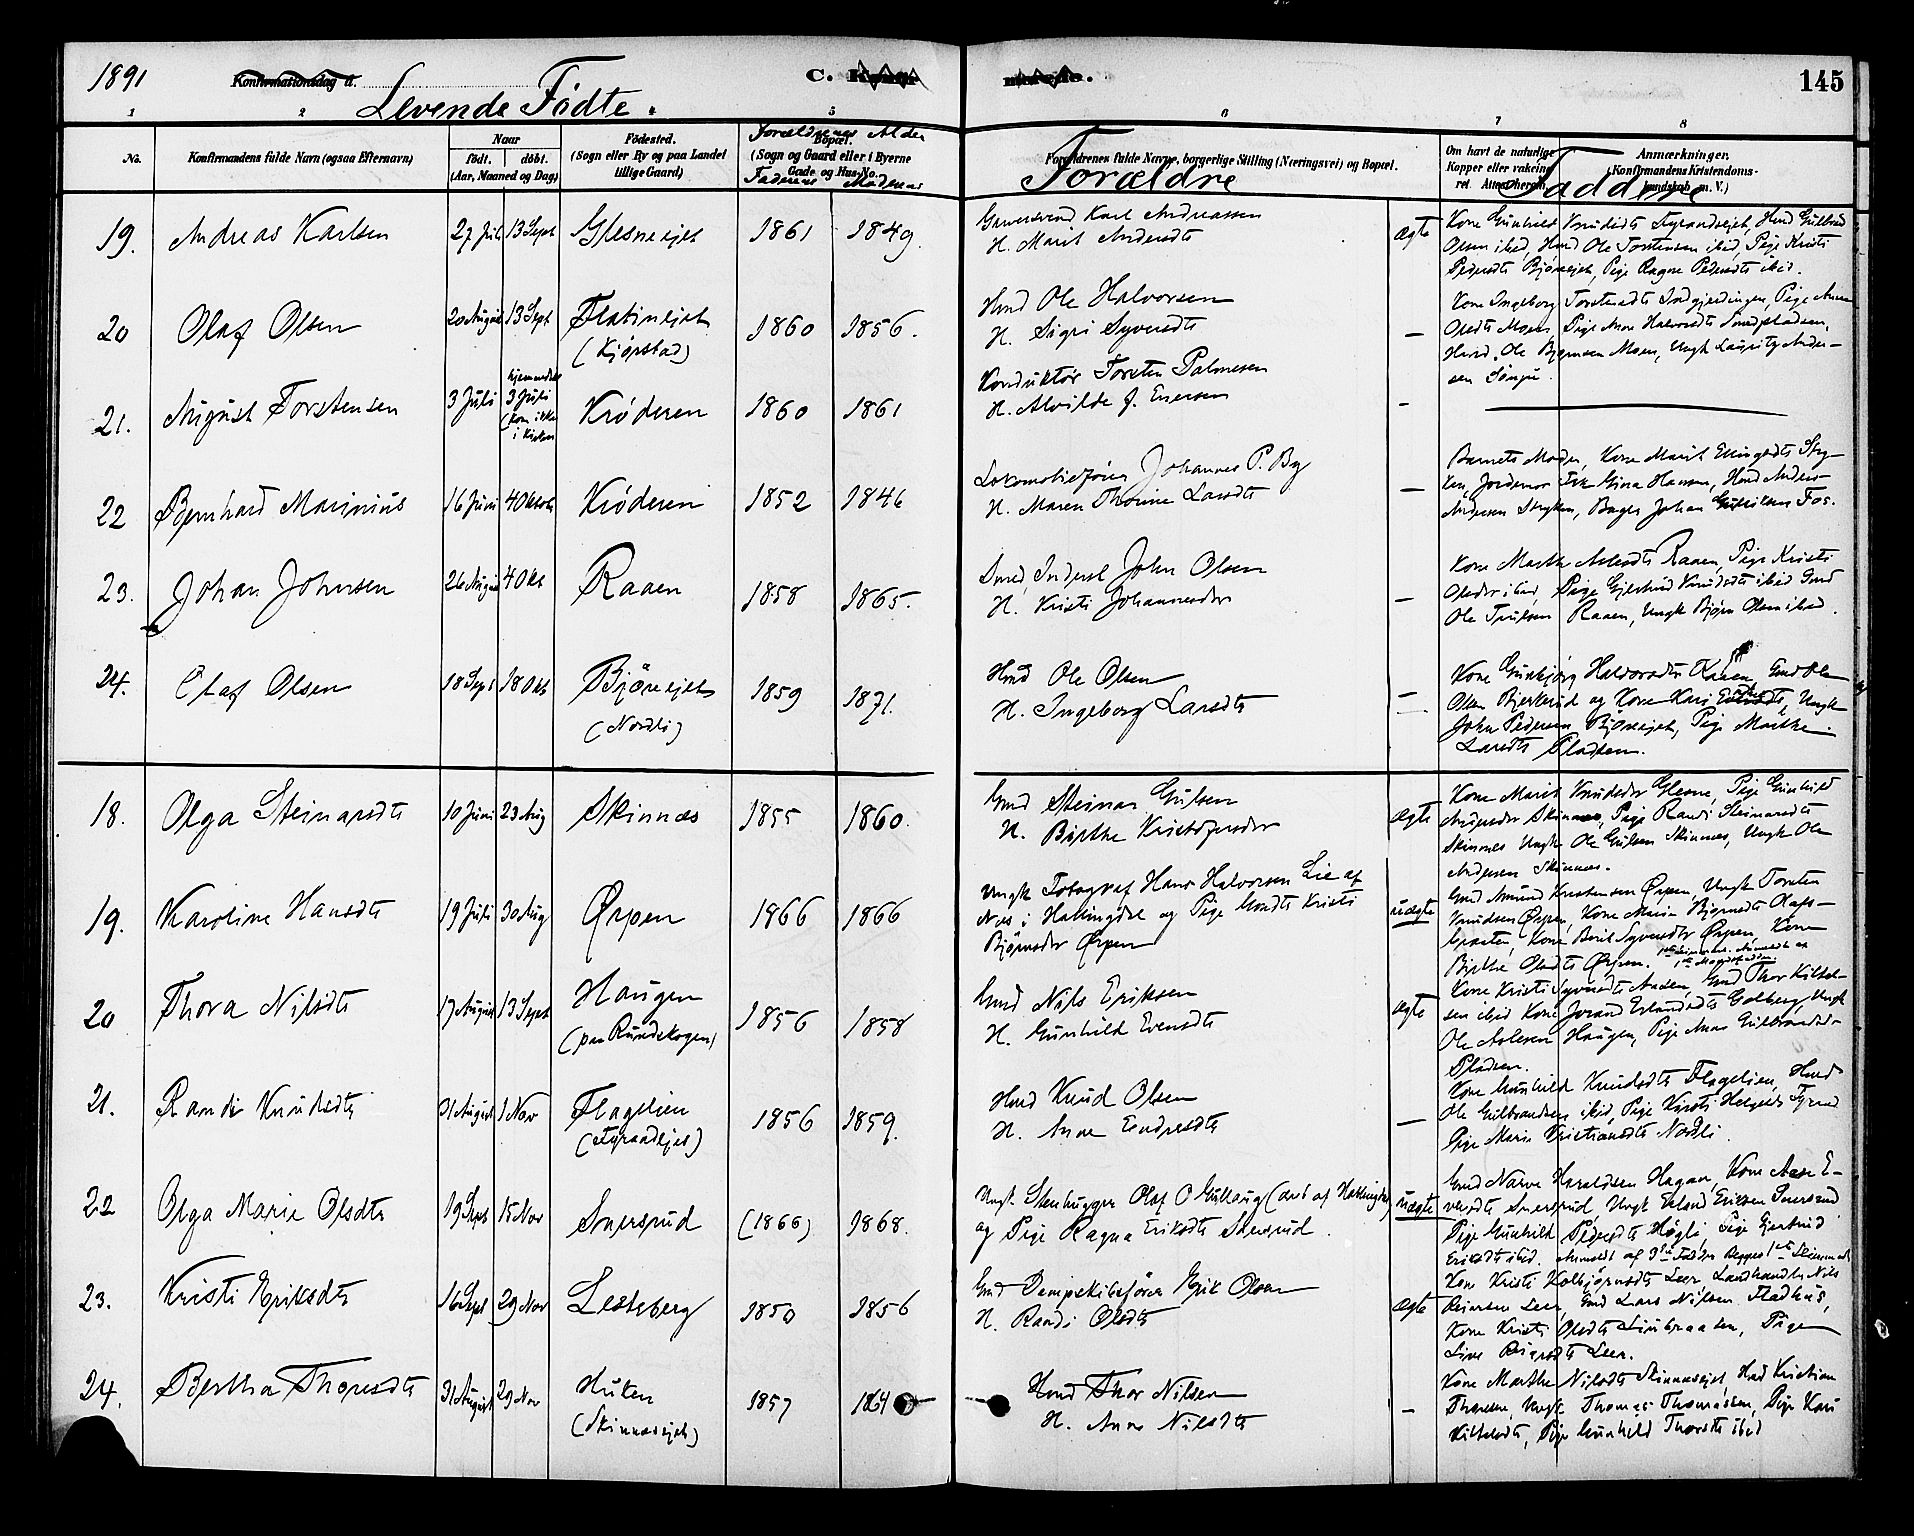 1891
Konfirmationsdag d.
C.
145
Levende Fødte.
1 2 4 5 6 7 8
Forældrenes Alder
No.
Konfirmandens fulde Navn (ogsaa Efternavn)
Naar
født. döbt.
(Aar, Maaned og Dag)
Födested.
(Sogn eller By og paa Landet
tillige Gaard)
Bopæl.
(Sogn og Gaard eller i Byerne
Gade og Hus-No.
Faderens Moderens
Forældrenes fulde Navne, borgerlige Stilling (Næringsvei) og Bopæl.
Forældre
Om havt de naturlige
Kopper eller vaksineret.
Anmærkninger.
(Konfirmandens Kristendoms-
kundskab m. V.)
Faddere
19. Andreas Karlsen 27 Juli 13 Sept Glesneejet 1861 1849.
Karl Andreassen
H. Marit Andersdt
ægte
Kone Gunhild Knudsdt, Hmd Gulbrand
Olsen ibid, Hmd Ole Torstensen ibid, Pige Kristi
Pedersdt Bjøreejet, Pige Ragne Pedersdt ibid.
20 Olaf Olsen 20 August 13 Sept Flatineiet 1860 1856.
(Kjørstad)
Hmd Ole Halvorsen
H. Sigri Syversdt
—
Kone Ingeborg Torstensdt, Pige Anne
Olsdt Moen, Pige Anne Halvorsdt
Hmd. Ole Bjørnsen Moen, Ungk Lauritz Ander-
sen
21. August Torstensen 3 Juli hjemmedøbt
3 Juli
(kom ikke
i Kirken
Krøderen 1860 1861
Konduktør Torsten Palmesen
H. Alvilde J. Enersen
—
22 Bernhard Marinius 16 Juni 4 Oktob Krøderen 1852 1846
Lokomotivfører Johannes P. By
H. Maren Thorine Larsdt
—
Barnets Moder, Kone Marit Ellingsdt Sty-
ken, Jordemor Frk Gina Hansen, Hmd Anders
Andersen Stryken, Bager Johan Fos.
23. Johan Johnsen 26 August 4 Okt Raaen 1858 1865.
Smed, Inderst John Olsen
H. Kristi Johannesdr
—
Kone Marthe Raaen, Pige Kristi
Olsdr ibid, Pige Gjertrud Knudsdt ibid Gmd
Ole Trulsen Raaen, Ungk Bjørn Olsen ibid.
24. Olaf Olsen 18 Sept 18 Okt Bjøreejet 1859 1871.
(Nordli)
Hmd Ole Olsen
H. Ingeborg Larsdt
—
Kone Gunbjørg Halvorsdt Raaen, Gmd Ole
Olsen Bjerkerud og Kone Kari, Ungk
John Pedersen Bjøreejet, Pige Marthe
Larsdt Pladsen.
18. Olga Steinarsdt 10 Juni 23 Aug Skinnes 1855 1860.
Gmd Steinar Gulsen
H. Birthe Kristofersdr
ægte
Kone Marit Knudsdr Glesne, Pige Gunhild
Andersdr Skinnes, Pige Randi Steinarsdt
Skinnes Ungk Ole Gulsen Skinnes, Ungk Ole
Andersen Skinnes.
19. Karoline Hansdt 19 Juli 30 Aug Ørpen 1866 1866
Ungk Fotograf Hans Halvorsen Lie af
Næs i Hallingdal og Pige Kristi
Bjørnsdr Ørpen
uægte
Gmd Amund Kristensen Ørpen, Ungk Torsten
Knudsen Ørpen, Kone Maria Bjørnsdt Olafs-
braaten, Kone Berit Syversdtr Ørpen, Kone
Birthe Olsdt Ørpen.
20 Thora Nilsdt 17 August 13 Sept Haugen 1856 1858
(paa Rundskogen)
Gmd Nils Eriksen
H. Gunhild Evensdt
ægte
Kone Kristi Syversdt Aasen, Gmd Thor Kittel-
sen ibid Kone Jorand Erlandsdt Golberg, Ungk
Ole Asleson Haugen, Pige Anne Gulbrandsd-
Pladsen.
21. Randi Knudsdt 31 August 1 Nov Flagelien 1856 1859.
(Styrandejet)
Hmd Knud Olsen
H. Anne Endresdt
—
Kone Gunhild Knudsdt Flagelien, Hmd
Ole Gulbrandsen ibid, Pige Kirsti
Pige Marie Kristiansdt Nordli.
22 Olga Marie Olsdt 19 Sept 15 Nov Snersrud (1866) 1868.
Ungk. Stenhugger Olaf O Gullaug
og Pige Ragna Eriksdt Snersrud.
uægte
Gmd Narve Haraldsen Hagan, Kone Aase E-
vensdt Snersrud Ungk Erland Eriksen Snersrud
Pige Gunhild Pedersdt Høgli, Pige Gjertrud
Eriksdt ibid.
23. Kristi Eriksdt 16 Sept 29 Nov Lesteberg 1850 1856
Gmd Dampskibsfører Erik Olsen
H. Randi Olsdt
ægte
Kone Kristi Kolbjørnsdt Leer, Landhandler Nils
Leer, Gmd Lars Nilsen Fladhus,
Kone Kristi Olsdt, Pige
Live Leer.
24. Bertha Thoresdt 31 August 29 Nov Huken 1857 1864
(Skinnesejet)
Hmd Thor Nilsen
H. Anne Nilsdt
—
Kone Marthe Nilsdt Skinnesejet, Hmd Kristian
Thoresen, Ungk Thomas Thomassen, Pige Kari
Kittelsdt, Pige Gunhild Thorsdt ibid